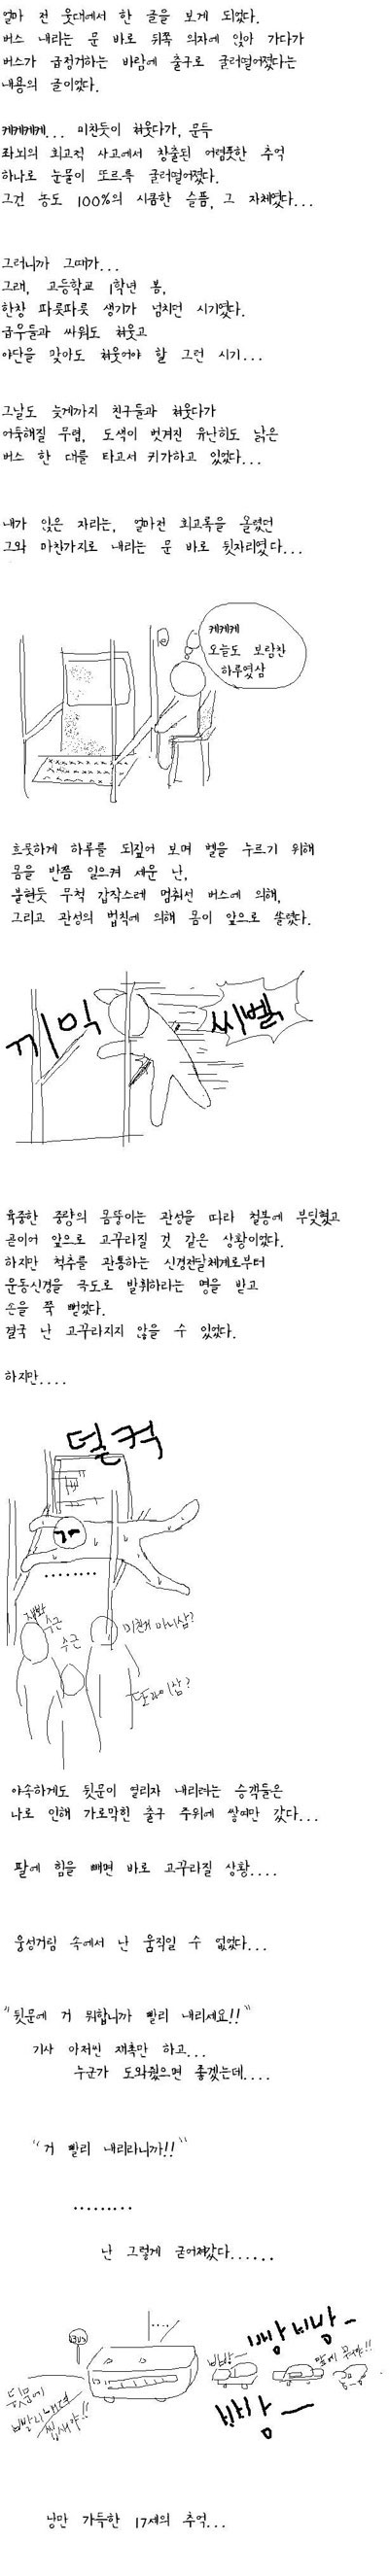 얼마 전 웃대에서 한 글을 보게 되었다.
버스 내리는 문 바로 뒤쪽 의자에 앉아 가다가
버스가 급정거하는 바람에 출구로 굴러떨어졌다는
내용의 글이었다.
케케케케... 미친듯이 쳐웃다가, 문득
좌뇌의 회고적 사고에서 창출된 어렴풋한 추억
하나로 눈물이 또르륵 굴러떨어졌다.
그건 농도 100%의 시큼한 슬픔, 그 자체였다...
그러니까 그때가...
그래, 고등학교 1학년 봄,
한창 파릇파릇 생기가 넘치던 시기였다.
급우들과 싸워도 쳐웃고
야단을 맞아도 쳐웃어야 할 그런 시기...
그날도 늦게까지 친구들과 쳐웃다가
어둑해질 무렵, 도색이 벗겨진 유난히도 낡은
버스 한 대를 타고서 귀가하고 있었다...
내가 앉은 자리는, 얼마전 회고록을 올렸던
그와 마찬가지로 내리는 문 바로 뒷자리였다...
케케케
오늘도 보람찬
하루였삼
흐뭇하게 하루를 되짚어 보며 벨을 누르기 위해
몸을 반쯤 일으켜 세운 난,
불현듯 무척 갑작스레 멈춰선 버스에 의해,
그리고 관성의 법칙에 의해 몸이 앞으로 쏠렸다.
끼익
씨벨
육중한 중량의 몸뚱이는 관성을 따라 철봉에 부딪혔고
곧이어 앞으로 고꾸라질 것 같은 상황이었다.
하지만 척추를 관통하는 신경전달체계로부터
운동신경을 극도로 발휘하라는 명을 받고
손을 쭉 뻗었다.
결국 난 고꾸라지지 않을 수 있었다.
하지만....
덜컥
........
쟤봐
수근
수근
미친거 아니삼?
또라이삼?
야속하게도 뒷문이 열리자 내리려는 승객들은
나로 인해 가로막힌 출구 주위에 쌓여만 갔다...
팔에 힘을 빼면 바로 고꾸라질 상황....
웅성거림 속에서 난 움직일 수 없었다...
"뒷문에 거 뭐합니까 빨리 내리세요!!"
기사 아저씬 재촉만 하고...
누군가 도와줬으면 좋겠는데....
"거 빨리 내리라니까!!"
.........
난 그렇게 굳어져갔다......
BUS
....
빠방~
빠방 빠방~
앞에 뭐야!!
뒷문에
빨리내려
씹새야!!
빠앙~
낭만 가득한 17세의 추억...